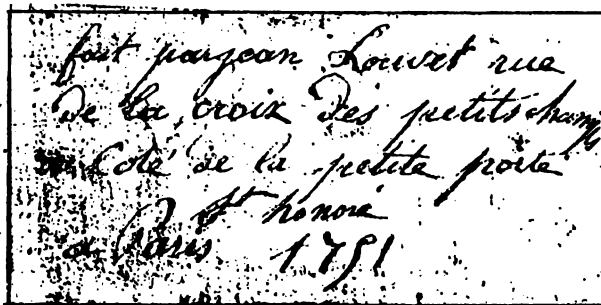 fait par jean Louvet rue
De la croix Des petits champs
a Coté de la petite porte
St honoré
a Paris 1751